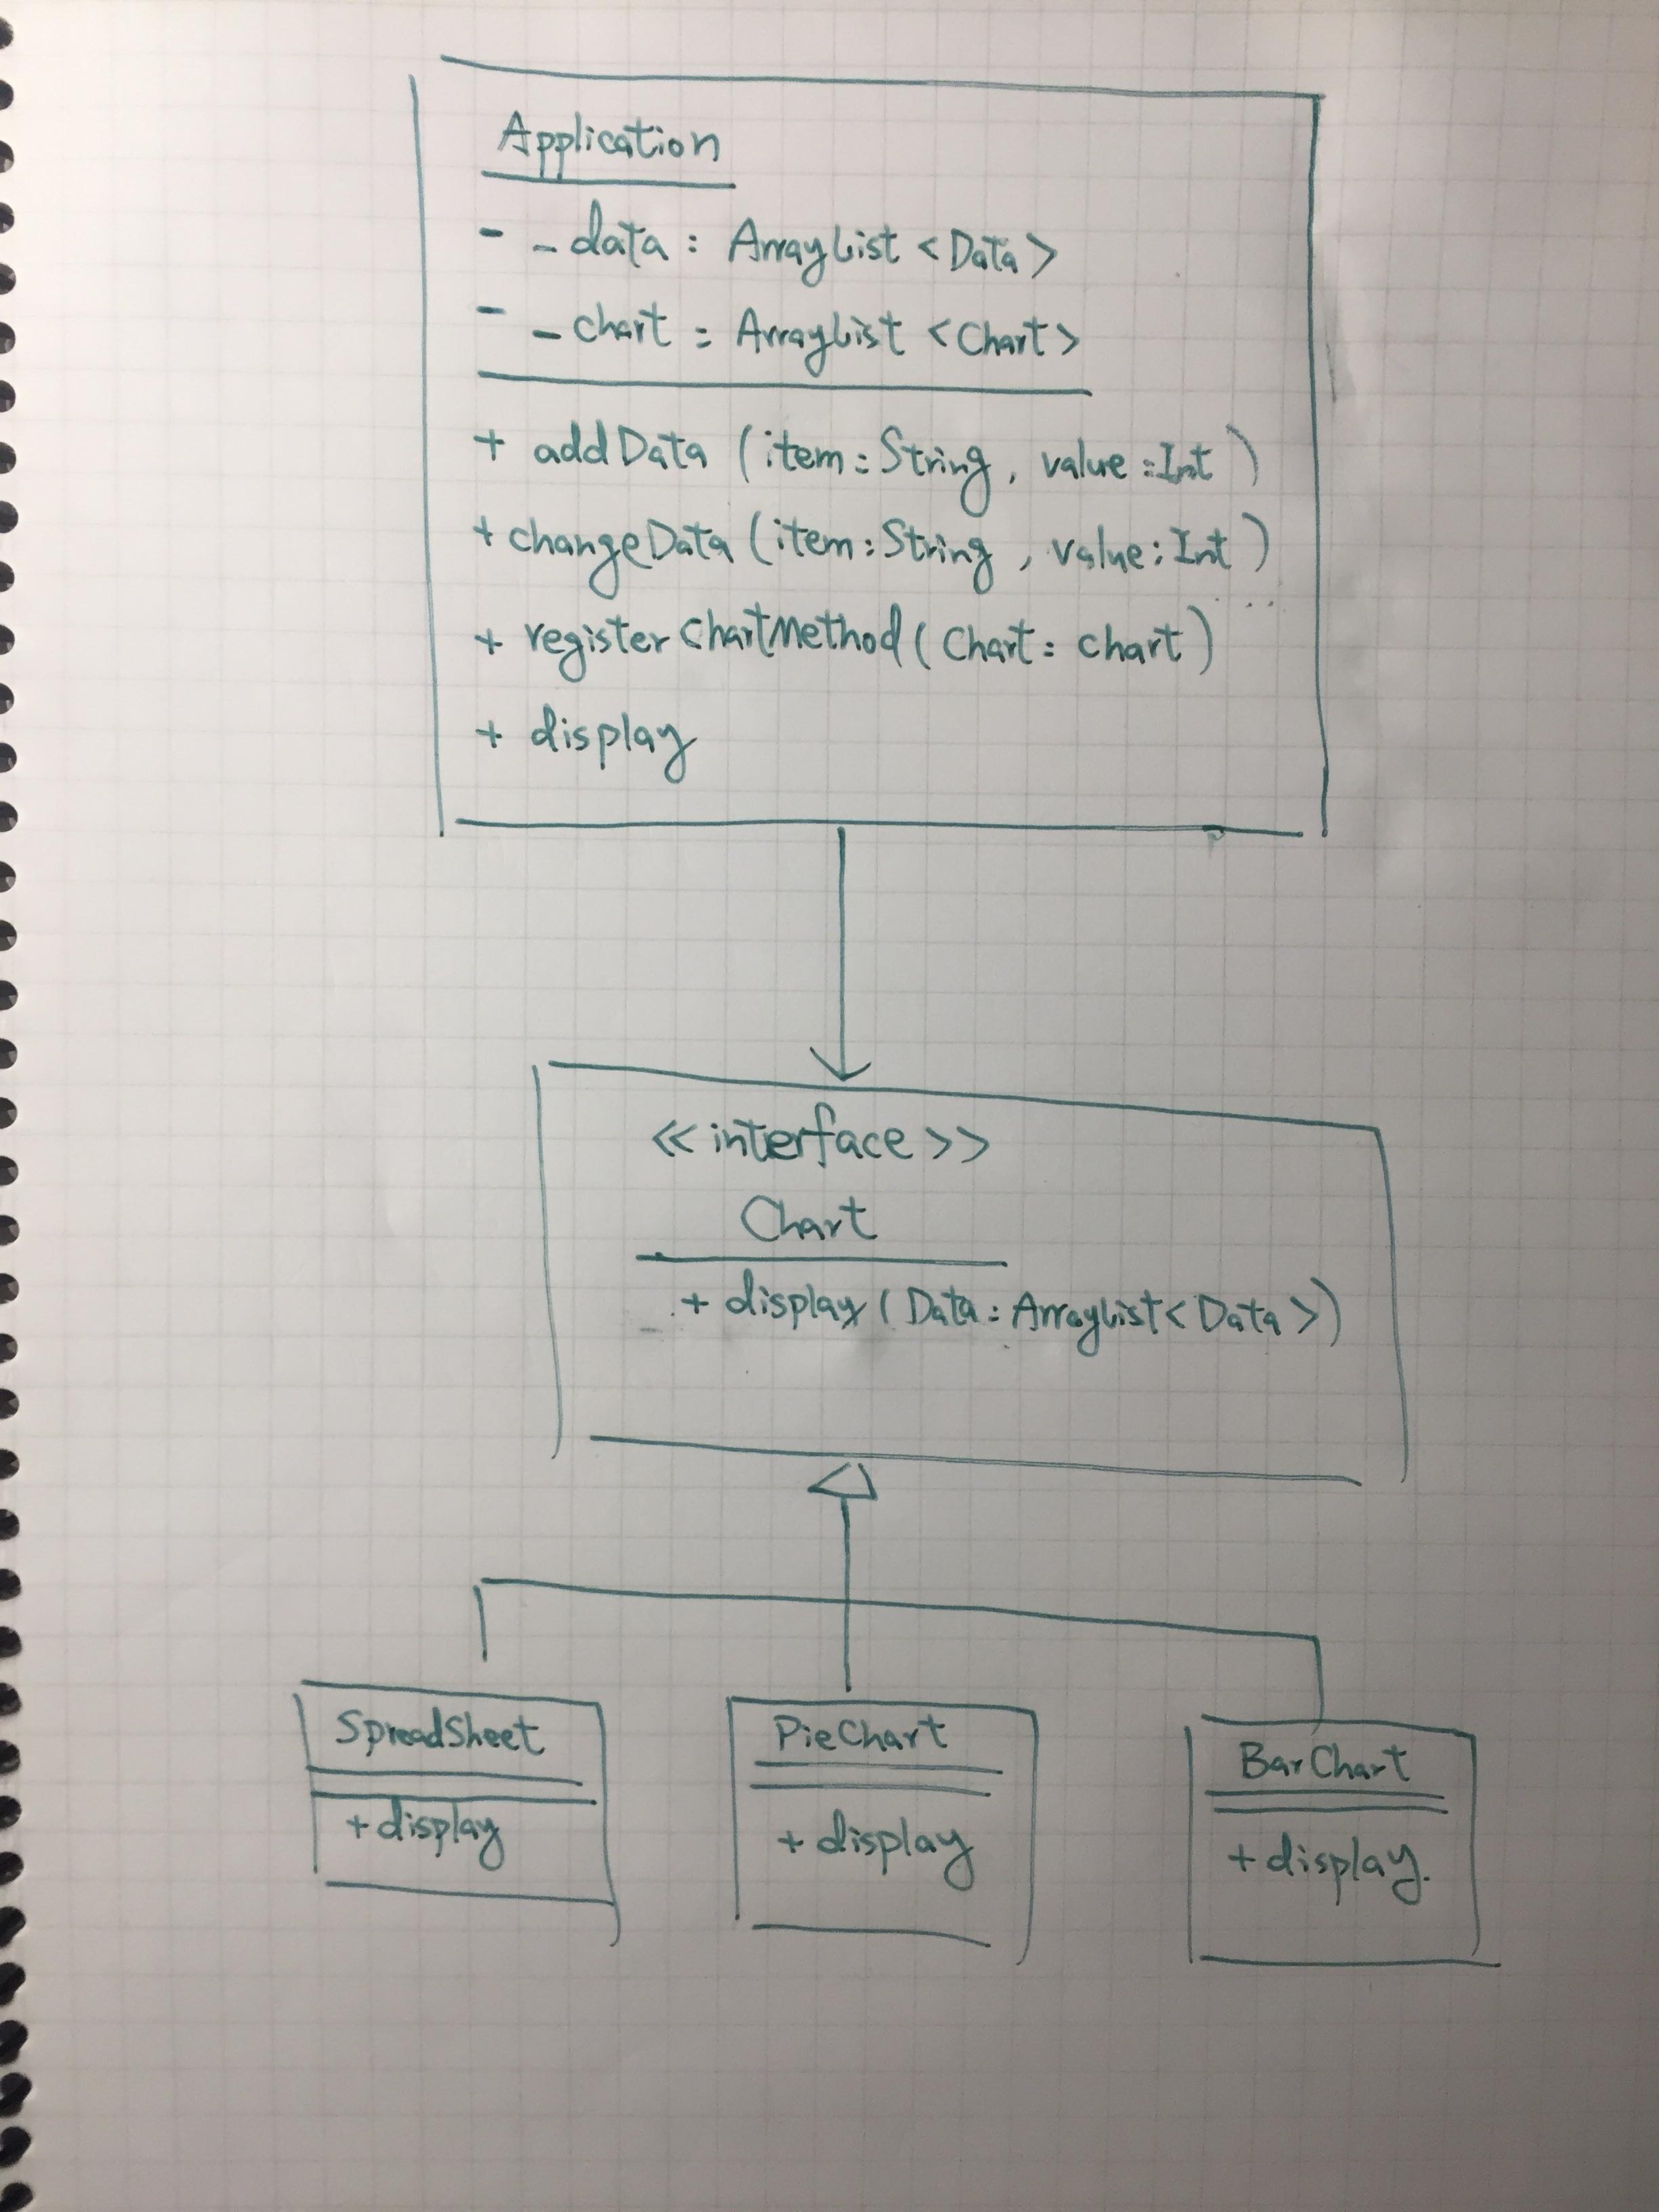 Application
- _data : ArrayList <Data>
- _chart : ArrayList <Chart>
+ addData (item : String, value : Int)
+ changeData (item : String, value : Int)
+ registerChartMethod (Chart : chart)
+ display
<<interface>>
Chart
+ display (Data : ArrayList<Data>)
SpreadSheet
+ display
PieChart
+ display
BarChart
+ display.